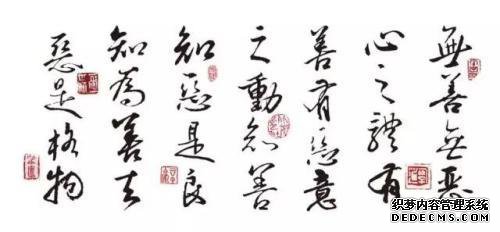 無善無惡
心之體有
善有惡意
之動知善
知惡是良
知為善去
惡是格物
织梦内容管理系统
DEDECMS.COM